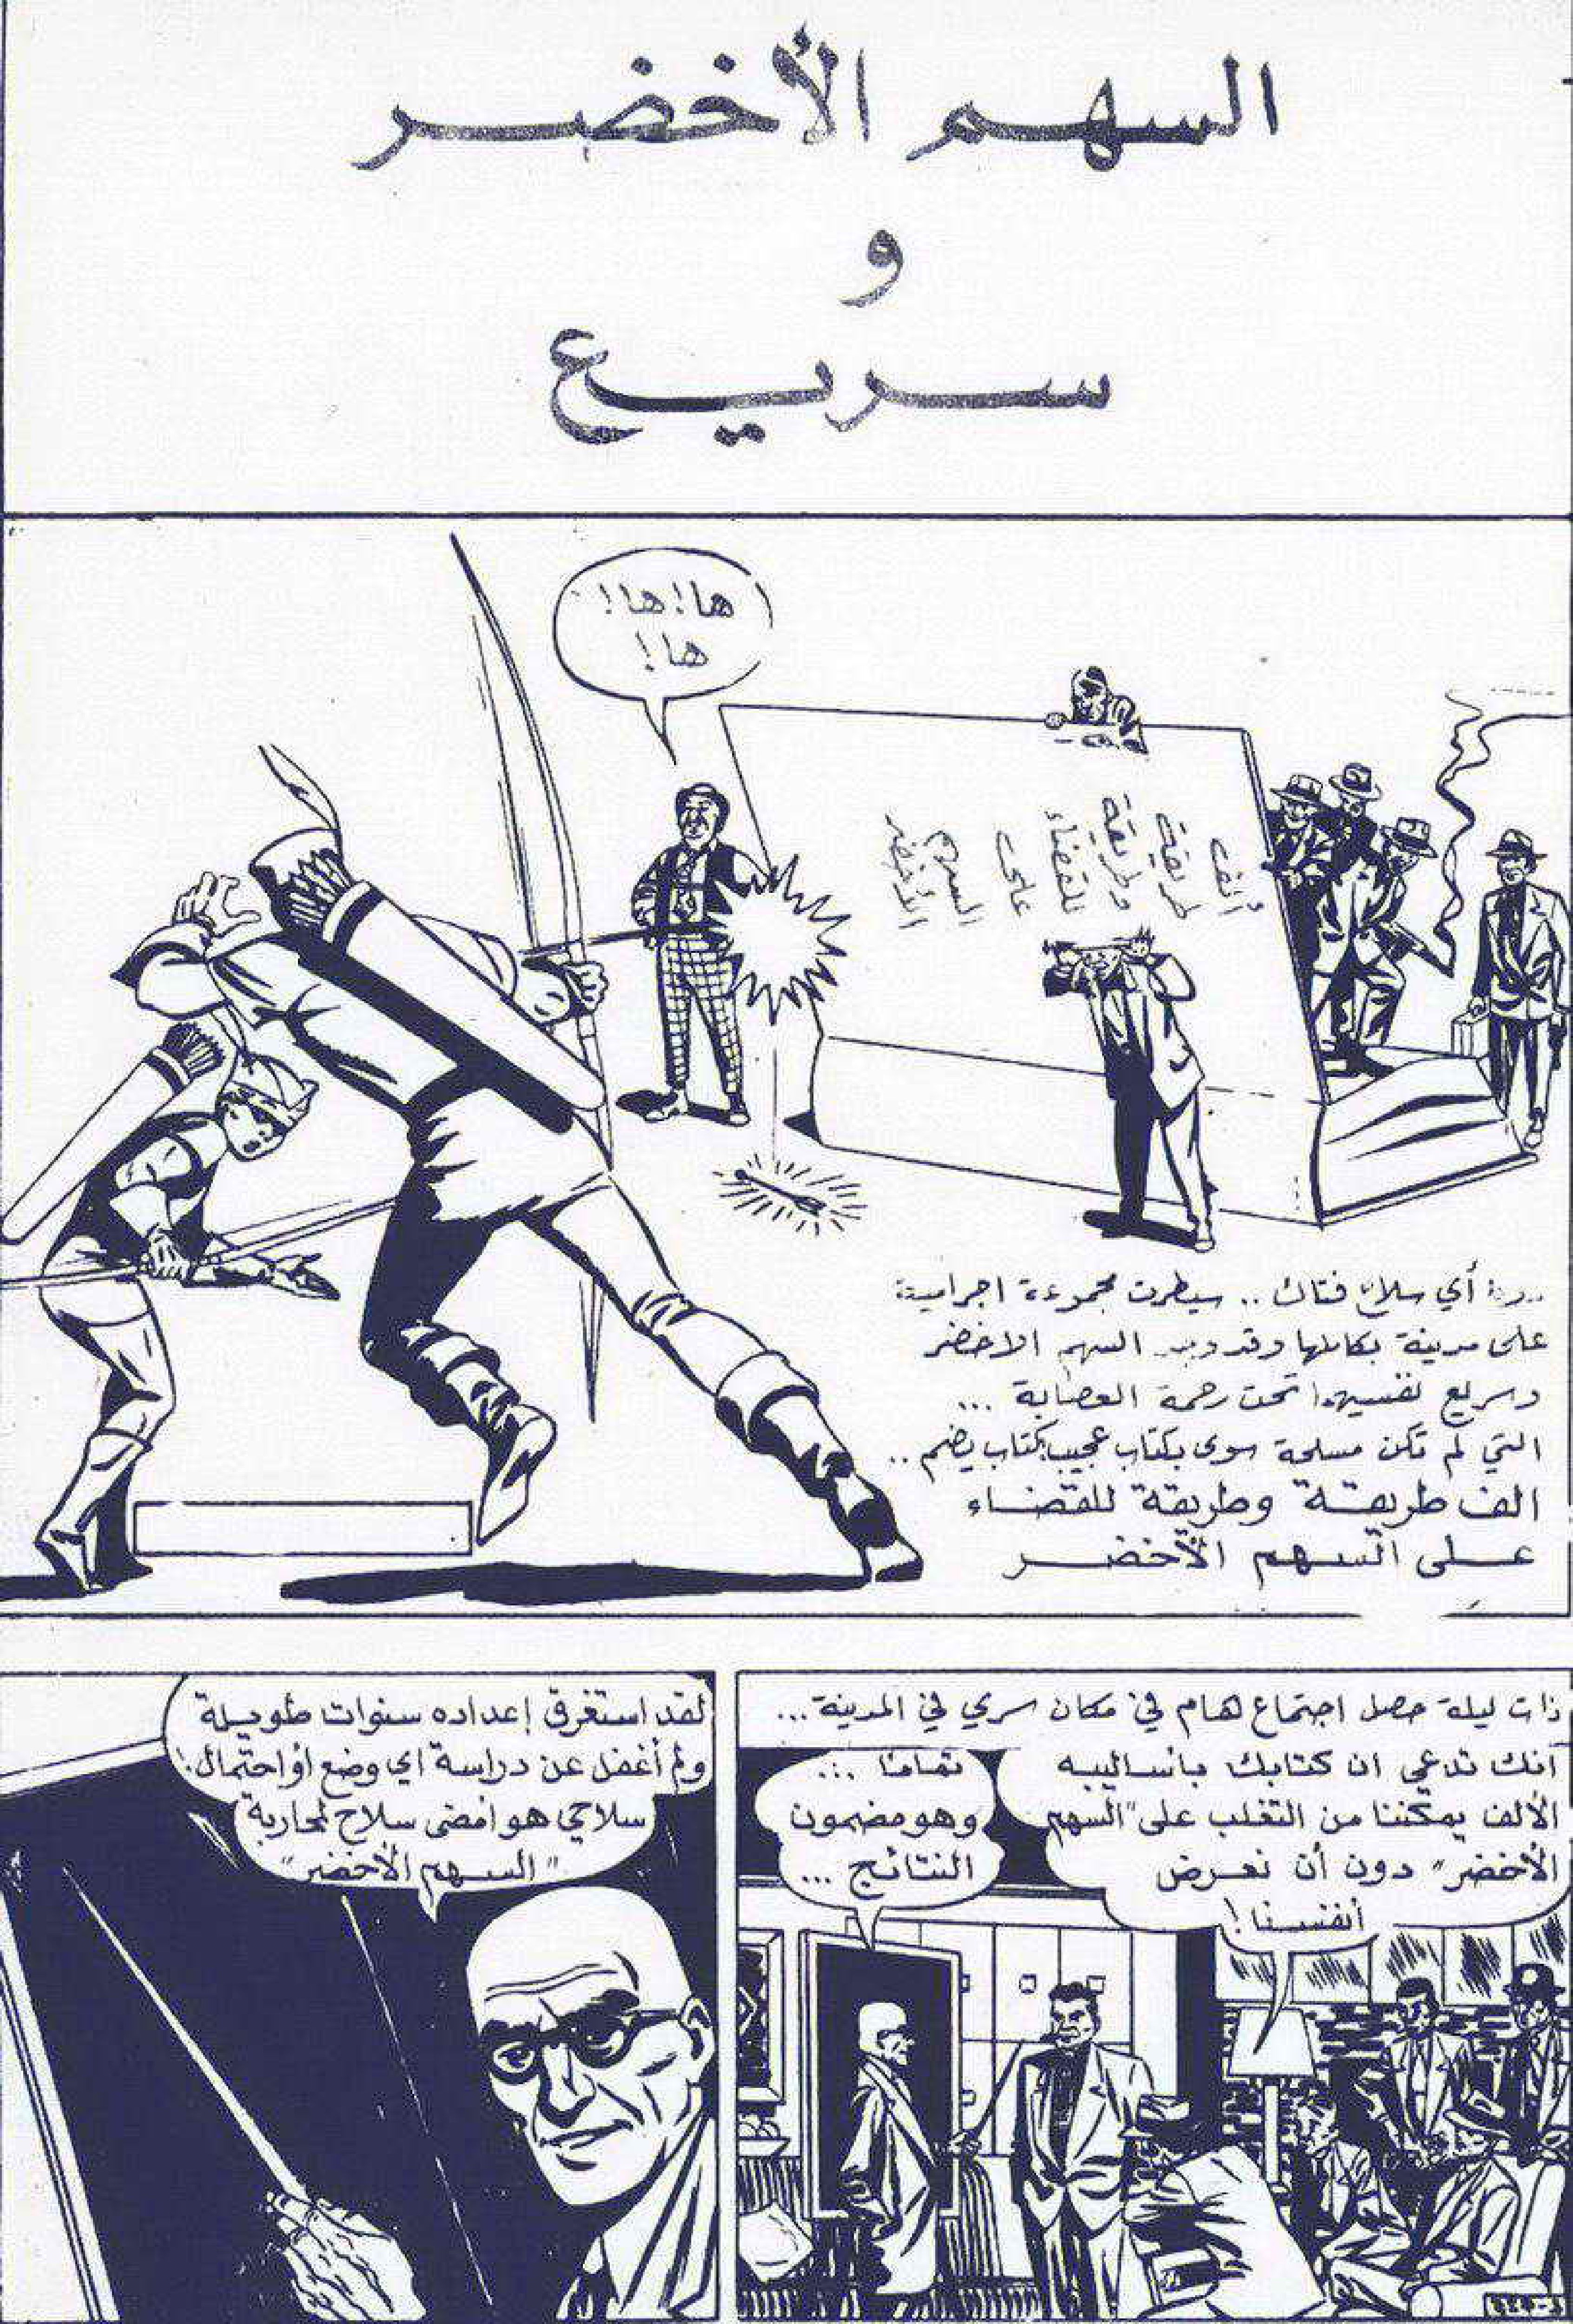 السهم الأخضر
و
سريع
ها! ها!
ها!
ألف
طريقة
وطريقة
للقضاء
على
السهم
الأخضر
أي سلاح فتاك .. سيطرت مجموعة اجرامية
على مدينة بكاملها وقد وجد السهم الاخضر
وسريع نفسيهما تحت رحمة العصابة ...
التي لم تكن مسلحة سوى بكتاب عجيب كتاب يضم ..
الف طريقة وطريقة للقضاء
على السهم الأخضر
ذات ليلة حصل اجتماع هام في مكان سري في المدينة ...
انك تدعي ان كتابك بأساليبه
الألف يمكننا من التغلب على "السهم
الأخضر" دون أن نعرض
أنفسنا!
تمامًا ...
وهو مضمون
النتائج ...
لقد استغرق إعداده سنوات طويلة
ولم أغفل عن دراسة اي وضع أو احتمال:
سلاحي هو امضى سلاح لمحاربة
"السهم الأخضر"